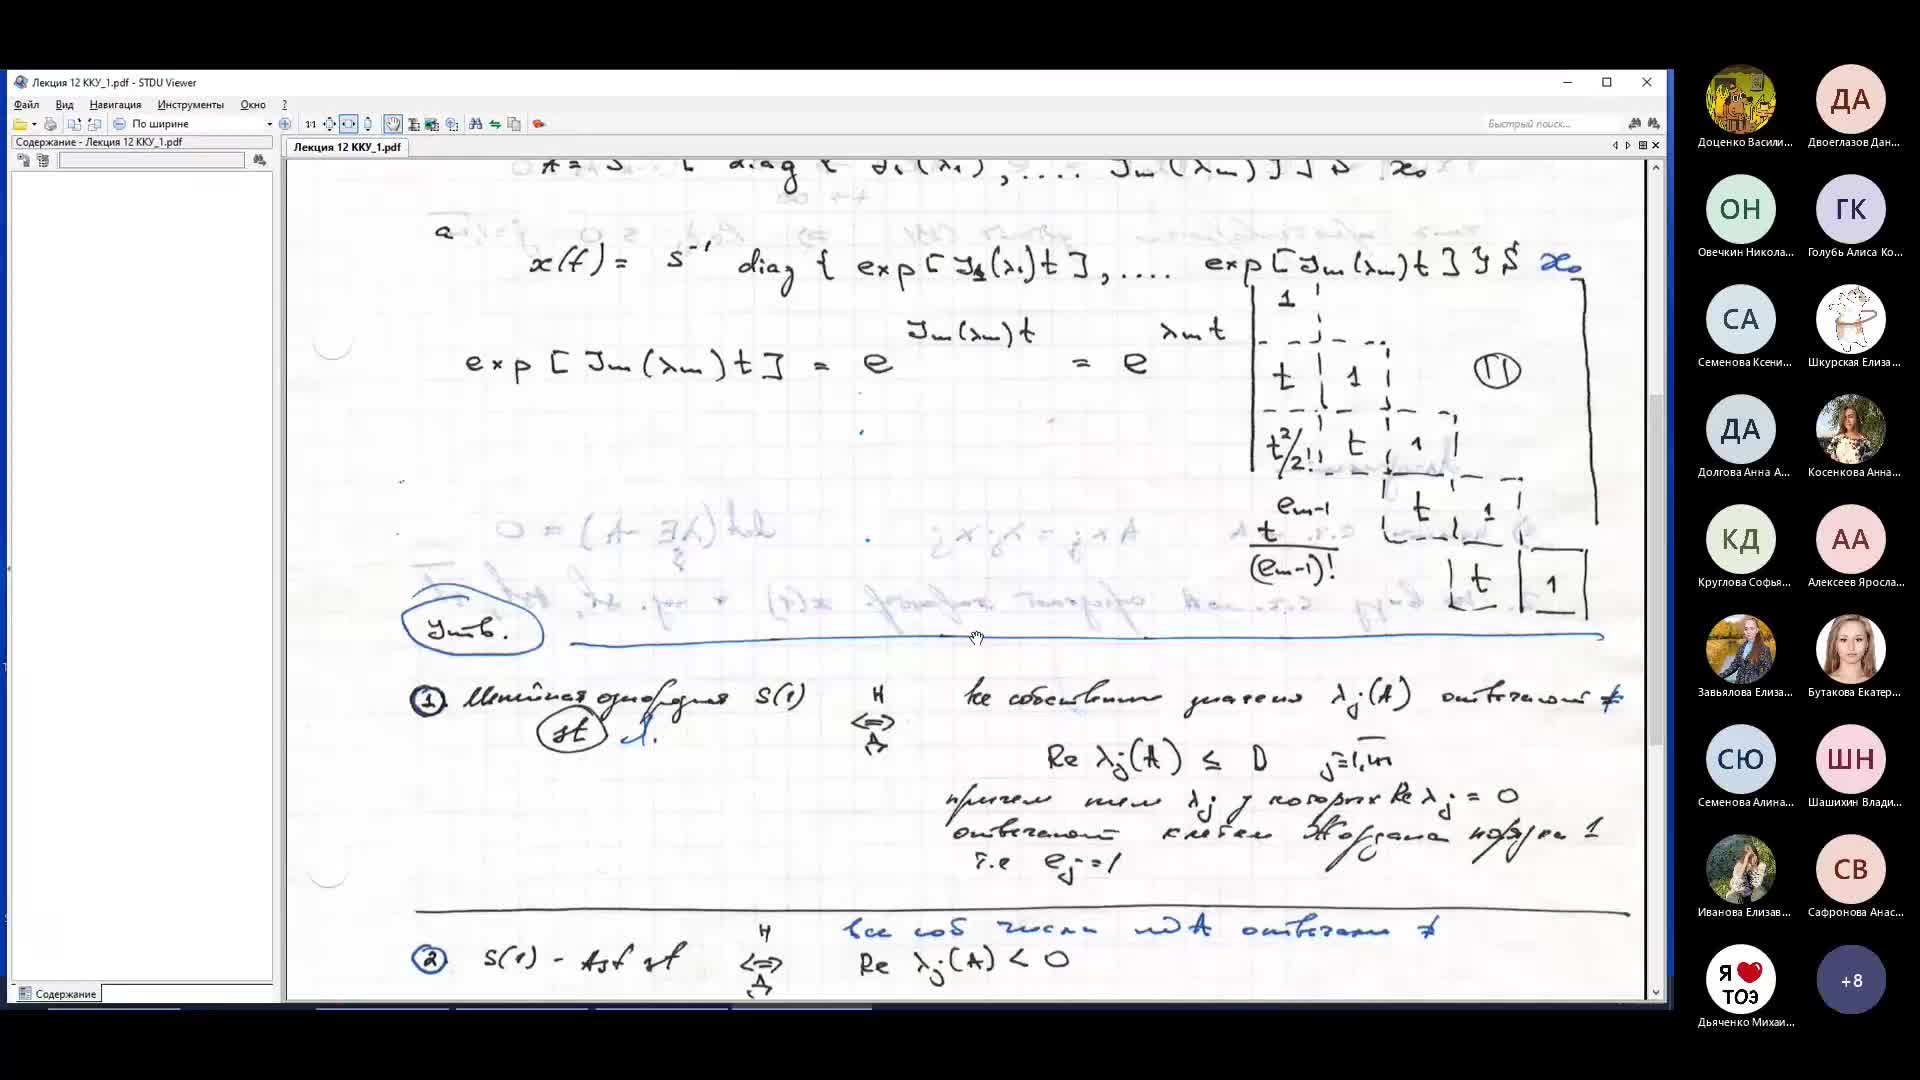 Лекция 12 ККУ_1.pdf - STDU Viewer
Файл Вид Навигация Инструменты Окно ?
По ширине
Быстрый поиск...
Содержание - Лекция 12 ККУ_1.pdf
Лекция 12 ККУ_1.pdf
а
x(t) = S⁻¹ diag { exp[J₁(λ₁)t], .... exp[Jm(λm)t]} S x₀
exp[Jm(λm)t] = e^{Jm(λm)t} = e^{λmt}
1
t 1
11
t²/2! t 1
t 1
t^{em-1}/(em-1)!
t 1
Утв.
1 Линейная однородная S(1) Н <=> Д все собственные значения λj(A) отвечают ≠
st Л.
Re λj(A) ≤ 0 j=1,m
причем тем λj у которых Re λj = 0
отвечают клетки Жордана порядка 1
т.е ej=1
2 S(1) - Asf st Н <=> Д все соб числа A отвечают ≠
Re λj(A) < 0
Содержание
Доценко Васили...
ДА
Двоеглазов Дан...
ОН
Овечкин Никола...
ГК
Голубь Алиса Ко...
СА
Семенова Ксени...
Шкурская Елиза...
ДА
Долгова Анна А...
Косенкова Анна...
КД
Круглова Софья...
АА
Алексеев Яросла...
Завьялова Елиза...
Бутакова Екатер...
СЮ
Семенова Алина...
ШН
Шашихин Влади...
Иванова Елизав...
СВ
Сафронова Анас...
Я ТОЭ
Дьяченко Михаи...
+8